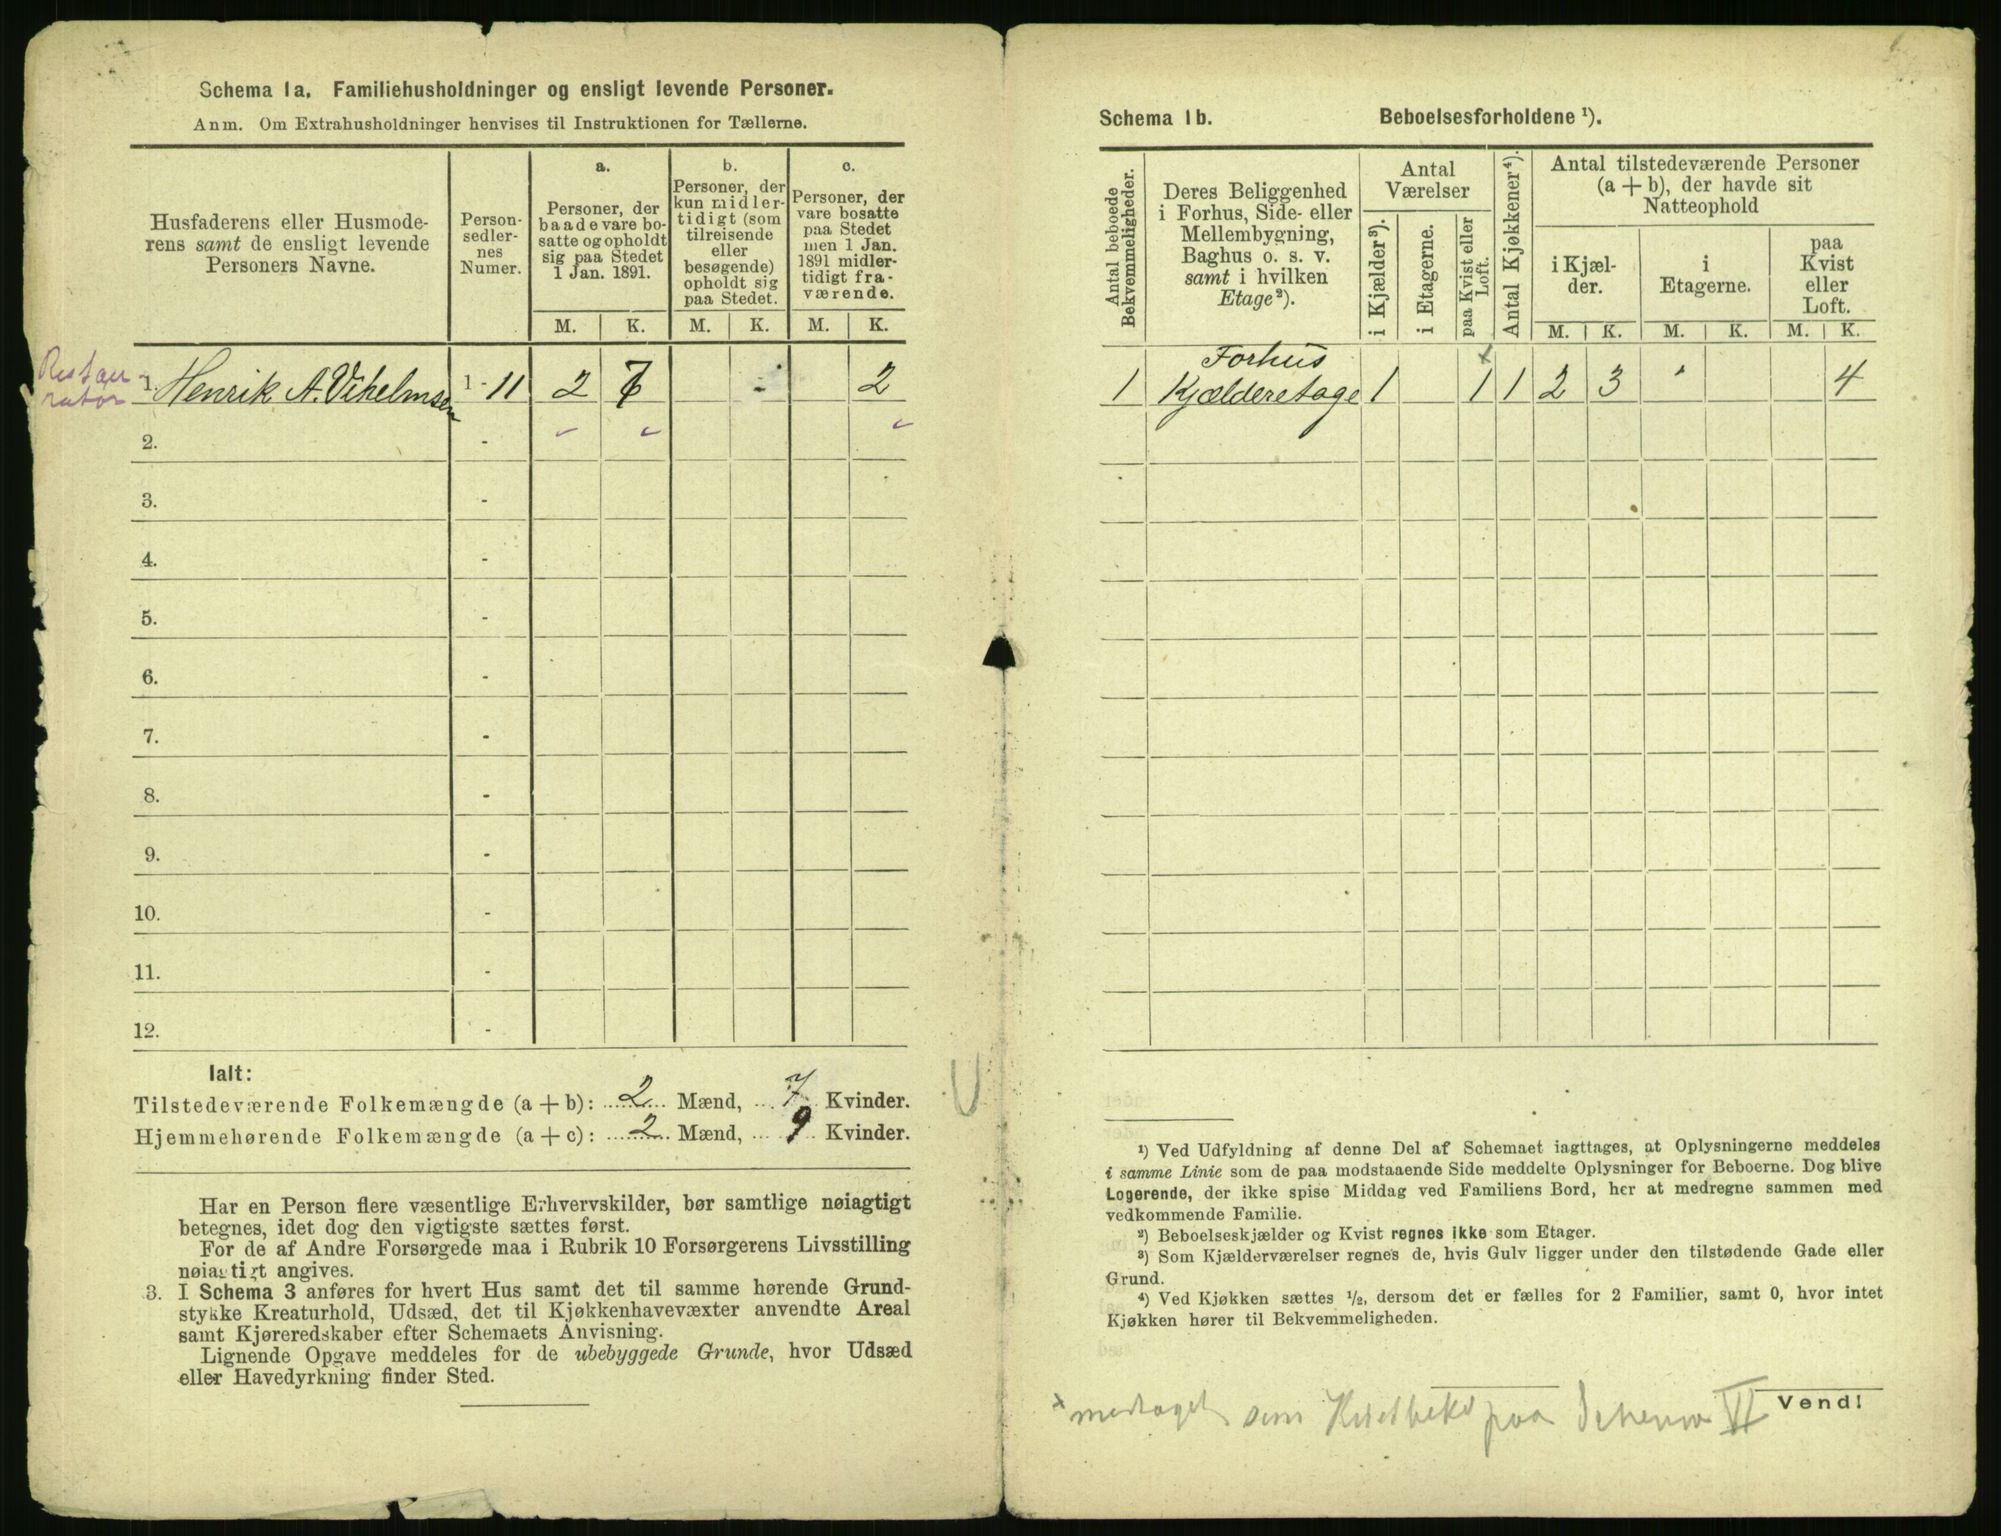 Schema 1a. Familiehusholdninger og ensligt levende Personer.
Anm. Om Extrahusholdninger henvises til Instruktionen for Tællerne.
Husfaderens eller Husmode-
rens samt de ensligt levende
Personers Navne.
Person-
sedler-
nes
Numer.
a.
Personer, der
baade vare bo-
satte og opholdt
sig paa Stedet
1 Jan. 1891.
b.
Personer, der
kun midler-
tidigt (som
tilreisende
eller
besøgende)
opholdt sig
paa Stedet.
c.
Personer, der
vare bosatte
paa Stedet
men 1 Jan.
1891 midler-
tidigt fra-
værende.
M. K. M. K. M. K.
Restau-
ratør
1. Henrik A. Vihelmsen 1 - 11 2 7 - 2
2. -
3. -
4. -
5. -
6. -
7. -
8. -
9. -
10. -
11. -
12. -
Ialt:
Tilstedeværende Folkemængde (a + b): 2 Mænd, 7 Kvinder.
Hjemmehørende Folkemængde (a + c): 2 Mænd, 9 Kvinder.
Har en Person flere væsentlige Erhvervskilder, bør samtlige nøiagtigt
betegnes, idet dog den vigtigste sættes først.
For de af Andre Forsørgede maa i Rubrik 10 Forsørgerens Livsstilling
nøiagtigt angives.
3. I Schema 3 anføres for hvert Hus samt det til samme hørende Grund-
stykke Kreaturhold, Udsæd, det til Kjøkkenhavevæxter anvendte Areal
samt Kjøreredskaber efter Schemaets Anvisning.
Lignende Opgave meddeles for de ubebyggede Grunde, hvor Udsæd
eller Havedyrkning finder Sted.
Schema 1b. Beboelsesforholdene ¹).
Antal beboede
Bekvemmeligheder.
Deres Beliggenhed
i Forhus, Side- eller
Mellembygning,
Baghus o. s. v.
samt i hvilken
Etage²).
Antal
Værelser
i Kjælder³).
i Etagerne.
paa Kvist eller
Loft.
Antal Kjøkkener⁴).
Antal tilstedeværende Personer
(a + b), der havde sit
Natteophold
i Kjæl-
der.
i
Etagerne.
paa
Kvist
eller
Loft.
M. K. M. K. M. K.
1 Forhus
Kjælderetage 1 1 x 1 2 3 4
¹) Ved Udfyldning af denne Del af Schemaet iagttages, at Oplysningerne meddeles
i samme Linie som de paa modstaaende Side meddelte Oplysninger for Beboerne. Dog blive
Logerende, der ikke spise Middag ved Familiens Bord, her at medregne sammen med
vedkommende Familie.
²) Beboelseskjælder og Kvist regnes ikke som Etager.
³) Som Kjælderværelser regnes de, hvis Gulv ligger under den tilstødende Gade eller
Grund.
⁴) Ved Kjøkken sættes ½, dersom det er fælles for 2 Familier, samt 0, hvor intet
Kjøkken hører til Bekvemmeligheden.
Vend!
x medtaget som Kvistbekv paa Schema VI